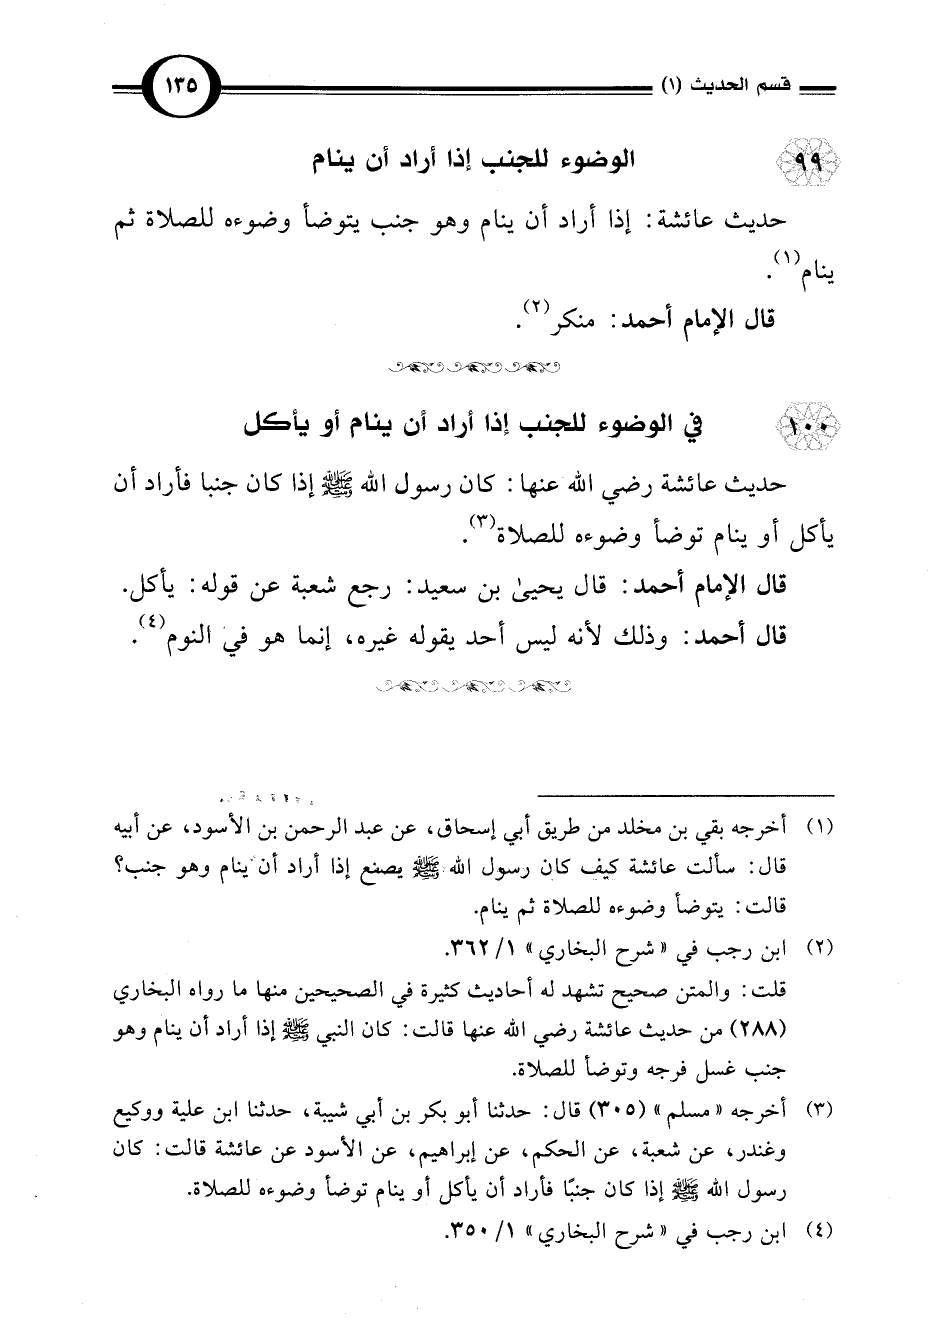 قسم الحديث (١) ١٣٥
٩٩ الوضوء للجنب إذا أراد أن ينام
حديث عائشة: إذا أراد أن ينام وهو جنب يتوضأ وضوءه للصلاة ثم
ينام(١).
قال الإمام أحمد: منكر(٢).
١٠٠ في الوضوء للجنب إذا أراد أن ينام أو يأكل
حديث عائشة رضي الله عنها: كان رسول الله ﷺ إذا كان جنبا فأراد أن
يأكل أو ينام توضأ وضوءه للصلاة(٣).
قال الإمام أحمد: قال يحيىٰ بن سعيد: رجع شعبة عن قوله: يأكل.
قال أحمد: وذلك لأنه ليس أحد يقوله غيره، إنما هو في النوم(٤).
(١) أخرجه بقي بن مخلد من طريق أبي إسحاق، عن عبد الرحمن بن الأسود، عن أبيه
قال: سألت عائشة كيف كان رسول الله ﷺ يصنع إذا أراد أن ينام وهو جنب؟
قالت: يتوضأ وضوءه للصلاة ثم ينام.
(٢) ابن رجب في «شرح البخاري» ١/ ٣٦٢.
قلت: والمتن صحيح تشهد له أحاديث كثيرة في الصحيحين منها ما رواه البخاري
(٢٨٨) من حديث عائشة رضي الله عنها قالت: كان النبي ﷺ إذا أراد أن ينام وهو
جنب غسل فرجه وتوضأ للصلاة.
(٣) أخرجه «مسلم» (٣٠٥) قال: حدثنا أبو بكر بن أبي شيبة، حدثنا ابن علية ووكيع
وغندر، عن شعبة، عن الحكم، عن إبراهيم، عن الأسود عن عائشة قالت: كان
رسول الله ﷺ إذا كان جنبًا فأراد أن يأكل أو ينام توضأ وضوءه للصلاة.
(٤) ابن رجب في «شرح البخاري» ١/ ٣٥٠.